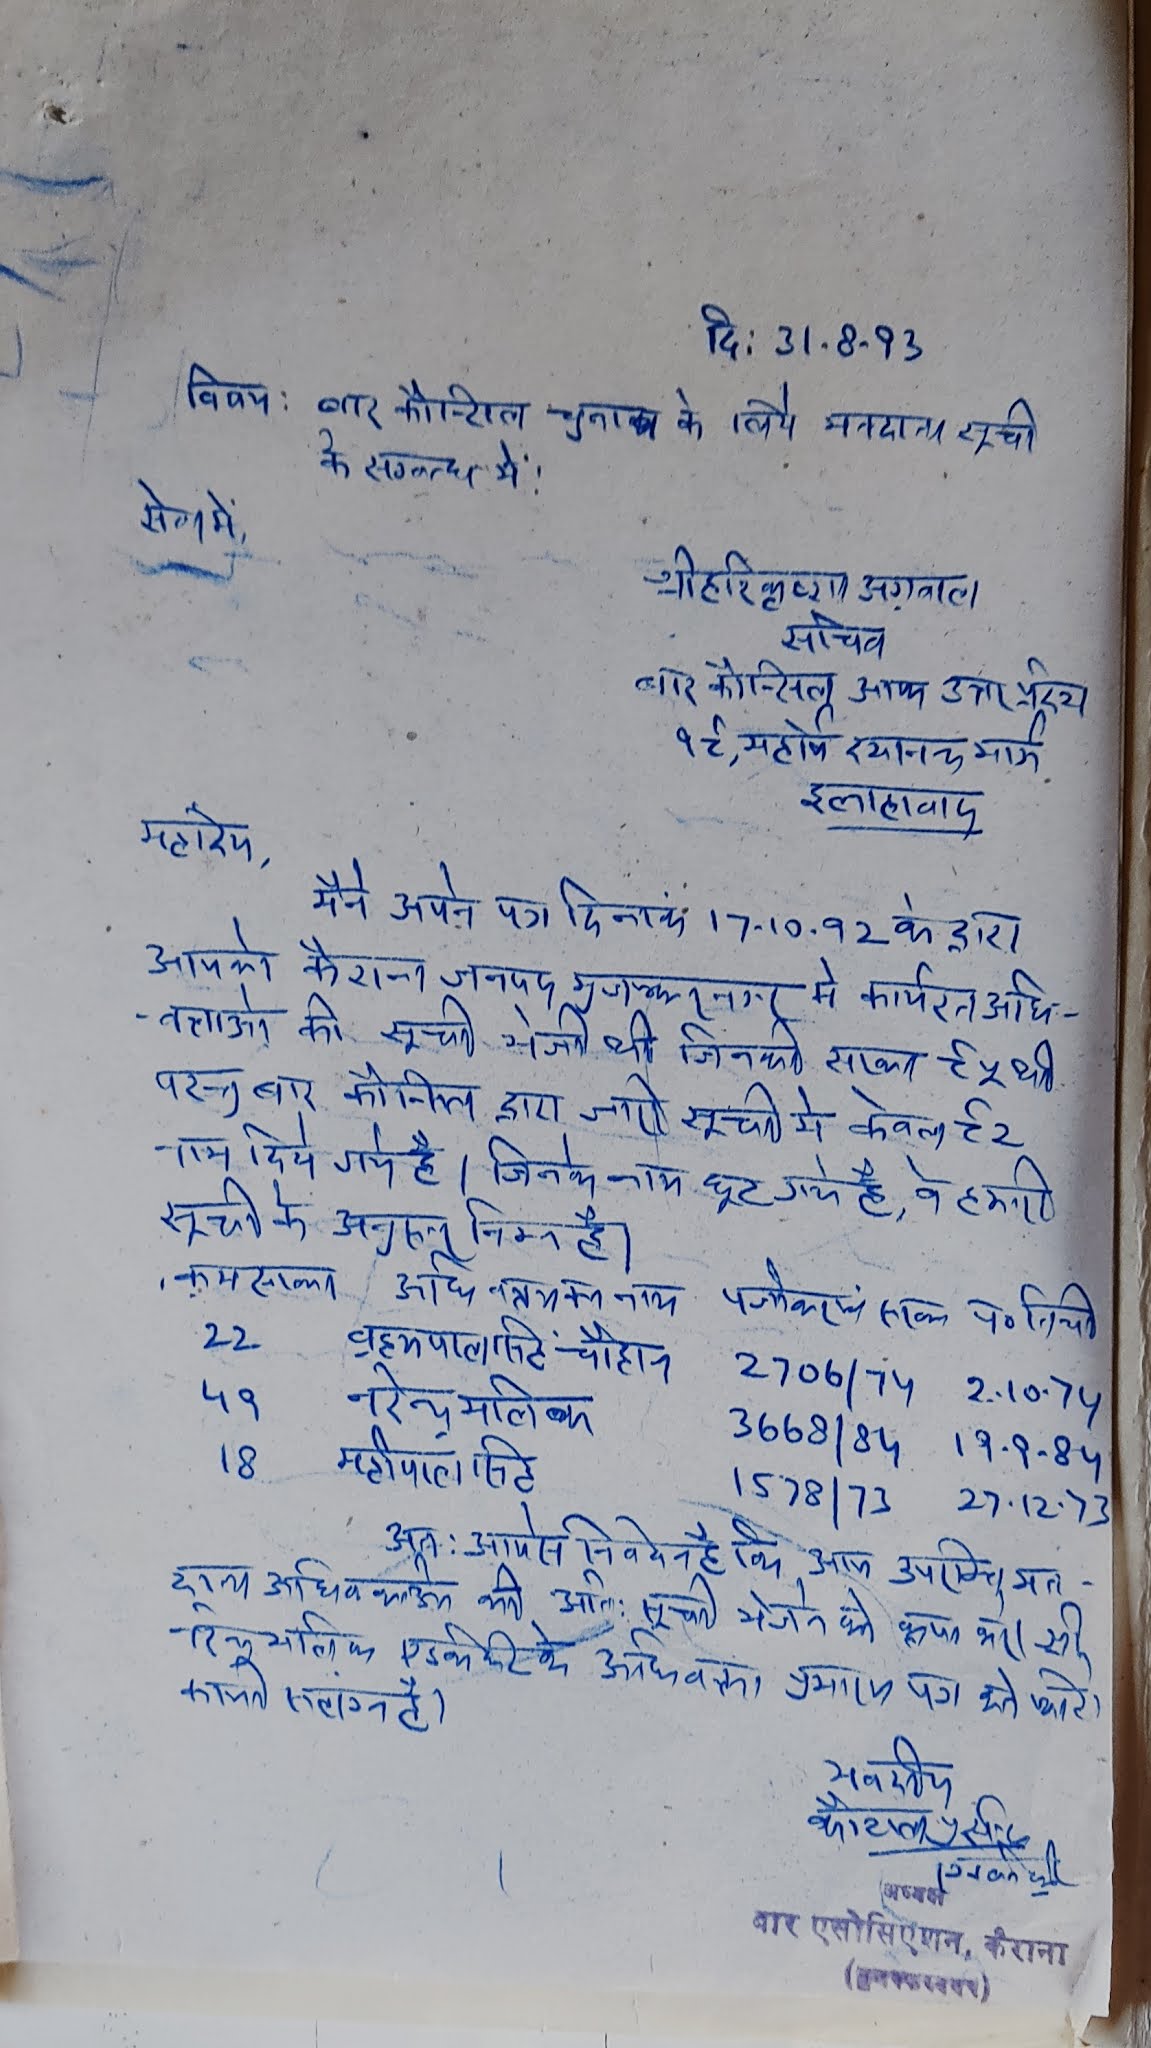 दि: 31-8-93
विषय: बार कौन्सिल चुनाव के लिये मतदाता सूची
के सम्बन्ध में!
सेवा में,
श्री हरिकृष्ण अग्रवाल
सचिव
बार कौन्सिल आफ उत्तर प्रदेश
१९, महर्षि दयानन्द मार्ग
इलाहाबाद
महोदय,
मैने अपने पत्र दिनांक 17-10-92 के द्वारा
आपको कैराना जनपद मुजफ्फरनगर मे कार्यरत अधि-
-वक्ताओ की सूची भेजी थी जिनकी संख्या थी
परन्तु बार कौन्सिल द्वारा जारी सूची मे केवल ९२
नाम दिये गये है। जिनके नाम छूट गये है, वे हमारी
सूची के अनुरूप निम्न है।
क्रम संख्या अधिवक्ता का नाम पंजीकरण संख्या पं० तिथी
22 ब्रहमपाल सिंह चौहान 2706/74 2-10-74
49 नरेन्द्र मलिक 3668/84 19-9-84
18 महीपाल सिंह 1578/73 27-12-73
अतः आपसे निवेदन है कि आप उपरोक्त मत-
दाता अधिवक्ताओ की सूची भेजने की कृपा करे। श्री
नरेन्द्र मलिक एडवोकेट के अधिवक्ता प्रमाण पत्र की फोटो
कापी संलग्न है।
भवदीय
अध्यक्ष
बार एसोसिएशन, कैराना
(मुजफ्फरनगर)